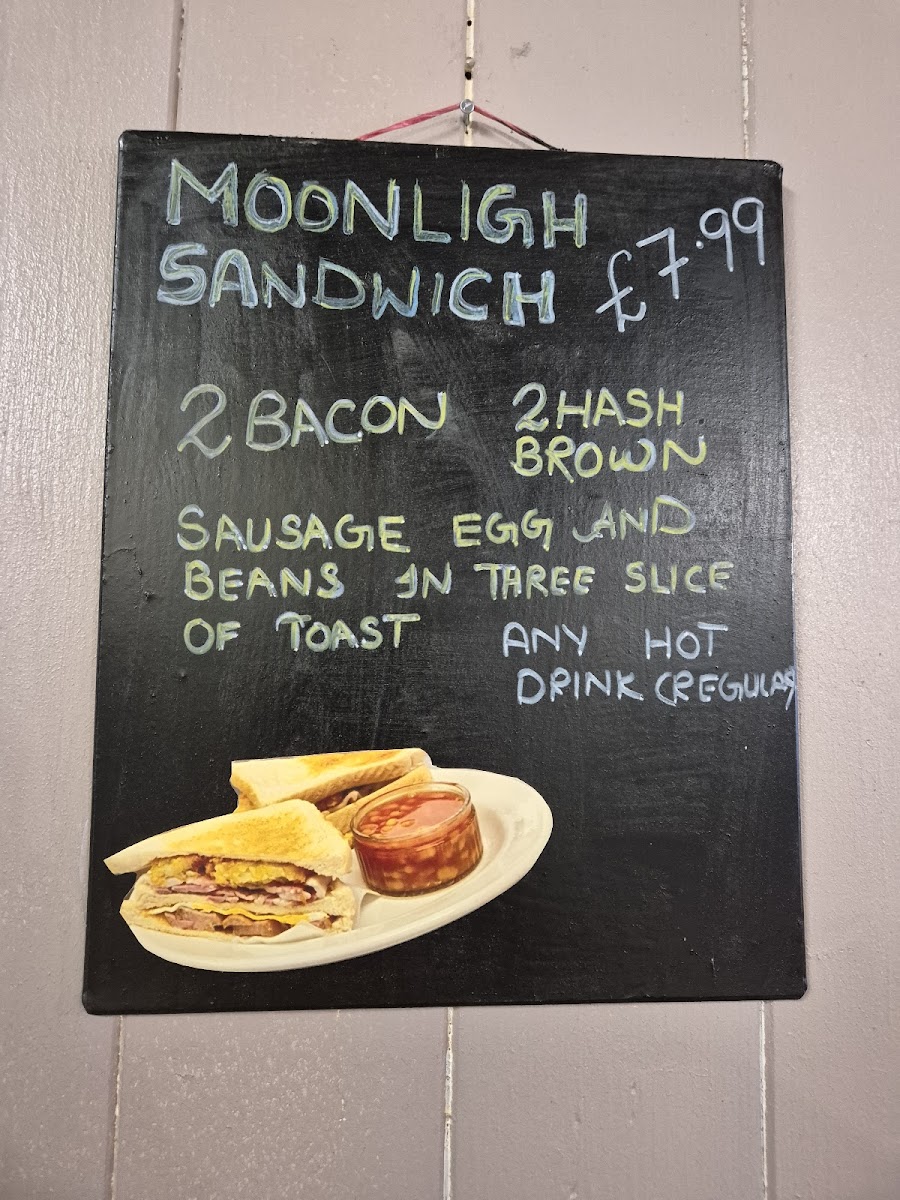 MOONLIGH
SANDWICH £7.99
2 BACON 2 HASH
BROWN
SAUSAGE EGG AND
BEANS IN THREE SLICE
OF TOAST
ANY HOT
DRINK (REGULAR